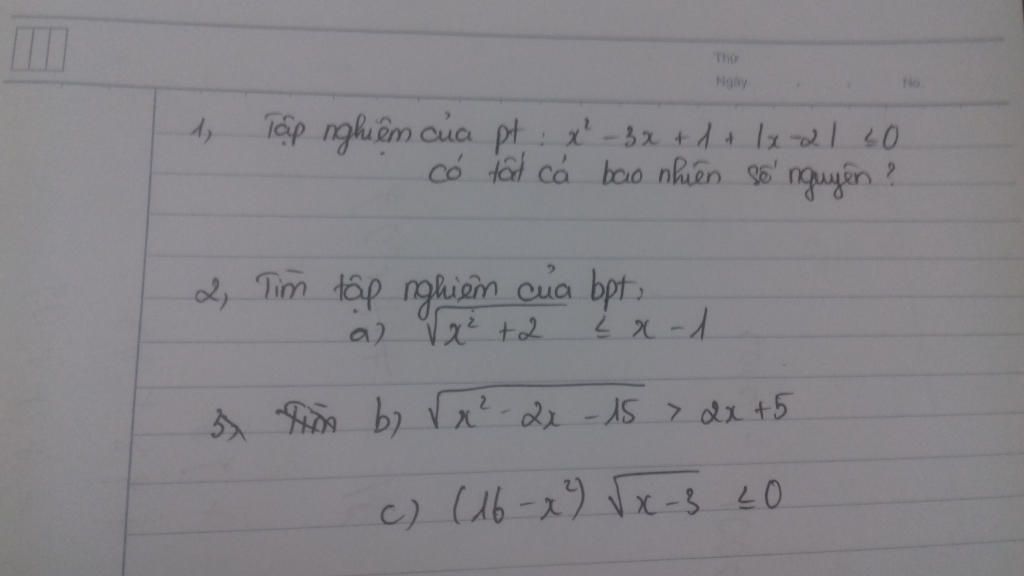 Thứ
Ngày . . No.
1, Tập nghiệm của pt : x² - 3x + 1 + |x - 2| ≤ 0
có tất cả bao nhiên số nguyên ?
2, Tìm tập nghiệm của bpt,
a) √(x² + 2) ≤ x - 1
3, Tìm b) √(x² - 2x - 15) > 2x + 5
c) (16 - x²) √(x - 3) ≤ 0